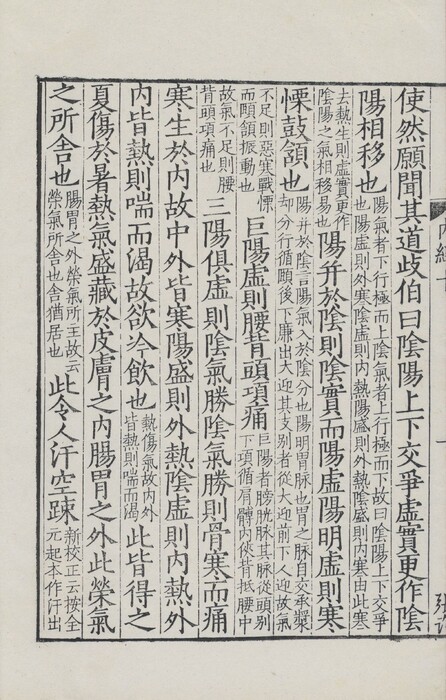 使然願聞其道歧伯曰陰陽上下交爭虛實更作陰
陽相移也
陽氣者下行極而上陰氣者上行極而下故曰陰陽上下交爭
也陽虛則外寒陰虛則內熱陽盛則外熱陰盛則內寒由此寒
去熱生則虛實更作
陰陽之氣相移易也
陽并於陰則陰實而陽虛陽明虛則寒
慄鼓頷也
陽并於陰言陽氣入於陰分也陽明胃脉也胃之脉自交承漿
却分行循頤後下廉出大迎其支别者從大迎前下人迎故氣
不足則惡寒戰慄
而頤頷振動也
巨陽虛則腰背頭項痛
巨陽者膀胱脉其脉從頭别
下項循肩髆内俠背抵腰中
故氣不足則腰
背頭項痛也
三陽俱虛則陰氣勝陰氣勝則骨寒而痛
寒生於內故中外皆寒陽盛則外熱陰虛則內熱外
內皆熱則喘而渴故欲冷飲也
熱傷氣故內外
皆熱則喘而渴
此皆得之
夏傷於暑熱氣盛藏於皮膚之內腸胃之外此榮氣
之所舍也
腸胃之外榮氣所主故云
榮氣所舍也舍猶居也
此令人汗空踈
新校正云按全
元起本作汗出